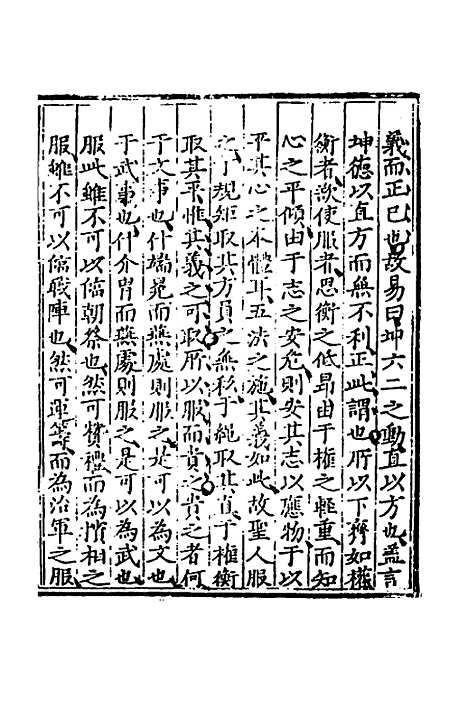 義而正已也故易曰坤六二之動直以方也盖言
坤德以直方而無不利正此謂也所以下齊如權
衡者欲使服者思衡之低昻由于權之輕重而知
心之平傾由于志之安危則安其志以應物于以
平其心之本體耳五法之施其義如此故聖人服
之于規矩取其方員之無私于繩取其直于權衡
取其平惟其義之可取所以服而貴之貴之者何
于文事也什端冕而無處則服之是可以為文也
于武事也什介胄而無處則服之是可以為武也
服此雖不可以臨朝祭也然可賛禮而為擯相之
服雖不可以臨戰陣也然可運籌而為治軍之服